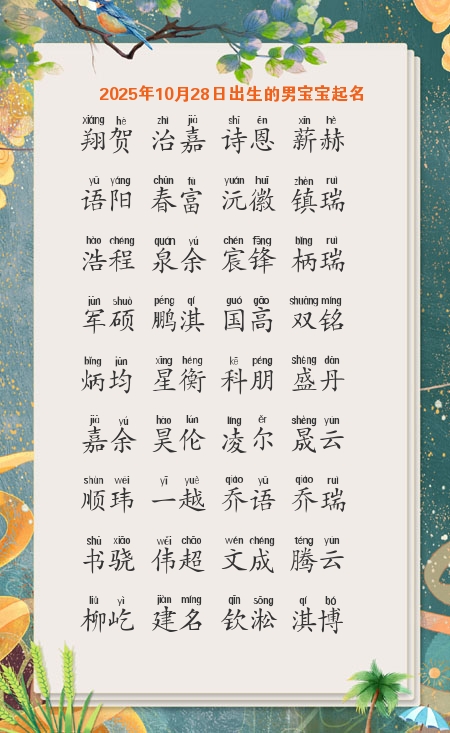 2025年10月28日出生的男宝宝起名
xiáng hè zhì jiā shī ēn xīn hè
翔贺 治嘉 诗恩 薪赫
yǔ yáng chūn fù yuán huī zhèn ruì
语阳 春富 沅徽 镇瑞
hào chéng quán yú chén fēng bǐng ruì
浩程 泉余 宸锋 柄瑞
jūn shuò péng qí guó gāo shuāng míng
军硕 鹏淇 国高 双铭
bǐng jūn xīng héng kē péng shèng dān
炳均 星衡 科朋 盛丹
jiā yú hào lún líng ěr shèng yún
嘉余 昊伦 凌尔 晟云
shùn wěi yī yuè qiáo yǔ qiáo ruì
顺玮 一越 乔语 乔瑞
shū xiāo wěi chāo wén chéng téng yún
书骁 伟超 文成 腾云
liǔ yì jiàn míng qīn sōng qí bó
柳屹 建名 钦淞 淇博